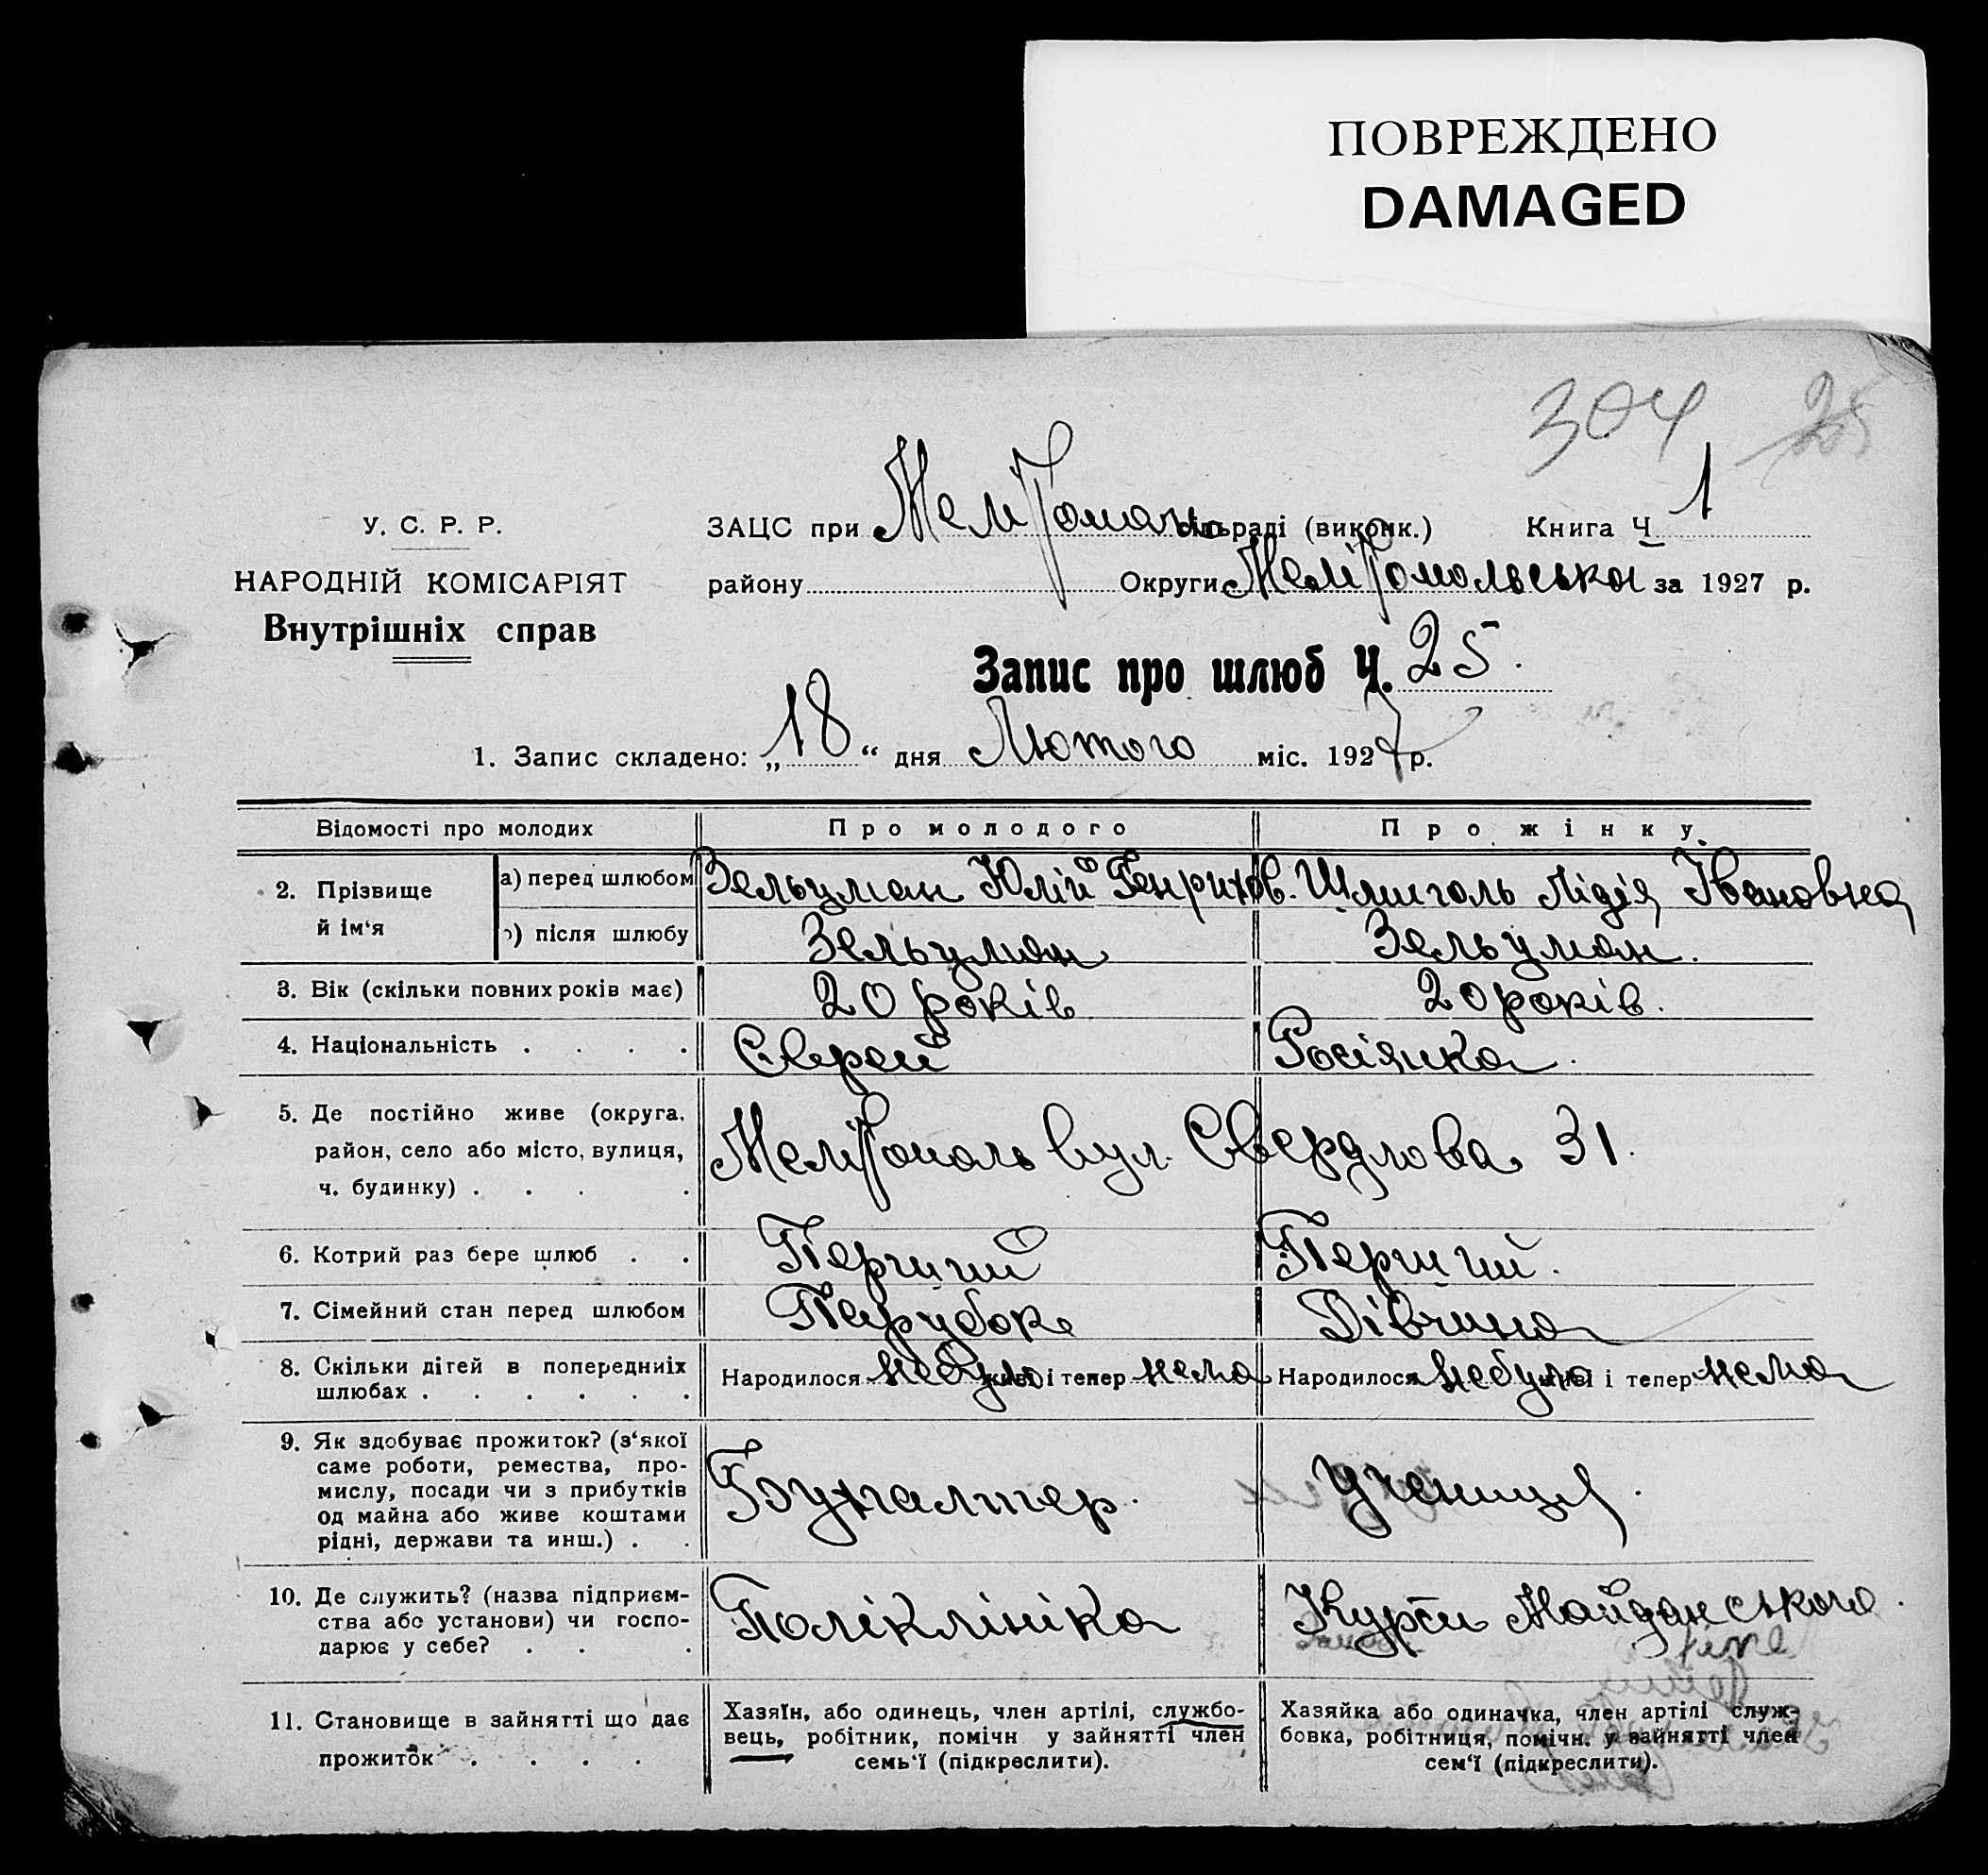 ПОВРЕЖДЕНО
DAMAGED
304 25
У. С. Р. Р.
НАРОДНІЙ КОМІСАРІЯТ
Внутрішніх справ
ЗАЦС при сільраді (виконк.) Книга Ч 1
району Округи Мелітопольська за 1927 р.
Запис про шлюб Ч. 25.
1. Запис складено: „18“ дня Лютого міс. 1927 р.
Відомості про молодих Про молодого Про жінку
2. Прізвище й ім'я
а) перед шлюбом Зельцман Юлій Генрихов. Шмиголь Лідія Івановна
б) після шлюбу Зельцман Зельцман.
3. Вік (скільки повних років має) 20 років 20 років.
4. Національність . . . . Єврей Росіянка.
5. Де постійно живе (округа,
район, село або місто, вулиця,
ч. будинку) . . . .
Мелітополь вул. Свердлова 31.
6. Котрий раз бере шлюб . . Перший Перший.
7. Сімейний стан перед шлюбом Парубок Дівчина
8. Скільки дітей в попередниіх
шлюбах . . . . . .
Народилося небуло живі і тепер нема Народилося небуло живі і тепер нема
9. Як здобуває прожиток? (з'якої
саме роботи, ремества, про-
мислу, посади чи з прибутків
од майна або живе коштами
рідні, держави та инш.) . .
Бухгалтер. Учениця.
10. Де служить? (назва підприєм-
ства або установи) чи госпо-
дарює у себе? . . .
Поліклініка Курси Майданського.
11. Становище в зайнятті що дає
прожиток . . . .
Хазяїн, або одинець, член артілі, службо-
вець, робітник, помічн у зайнятті член
семь'ї (підкреслити).
Хазяйка або одиначка, член артілі служ-
бовка, робітниця, помічн. у зайнятті член
сем'ї (підкреслити).